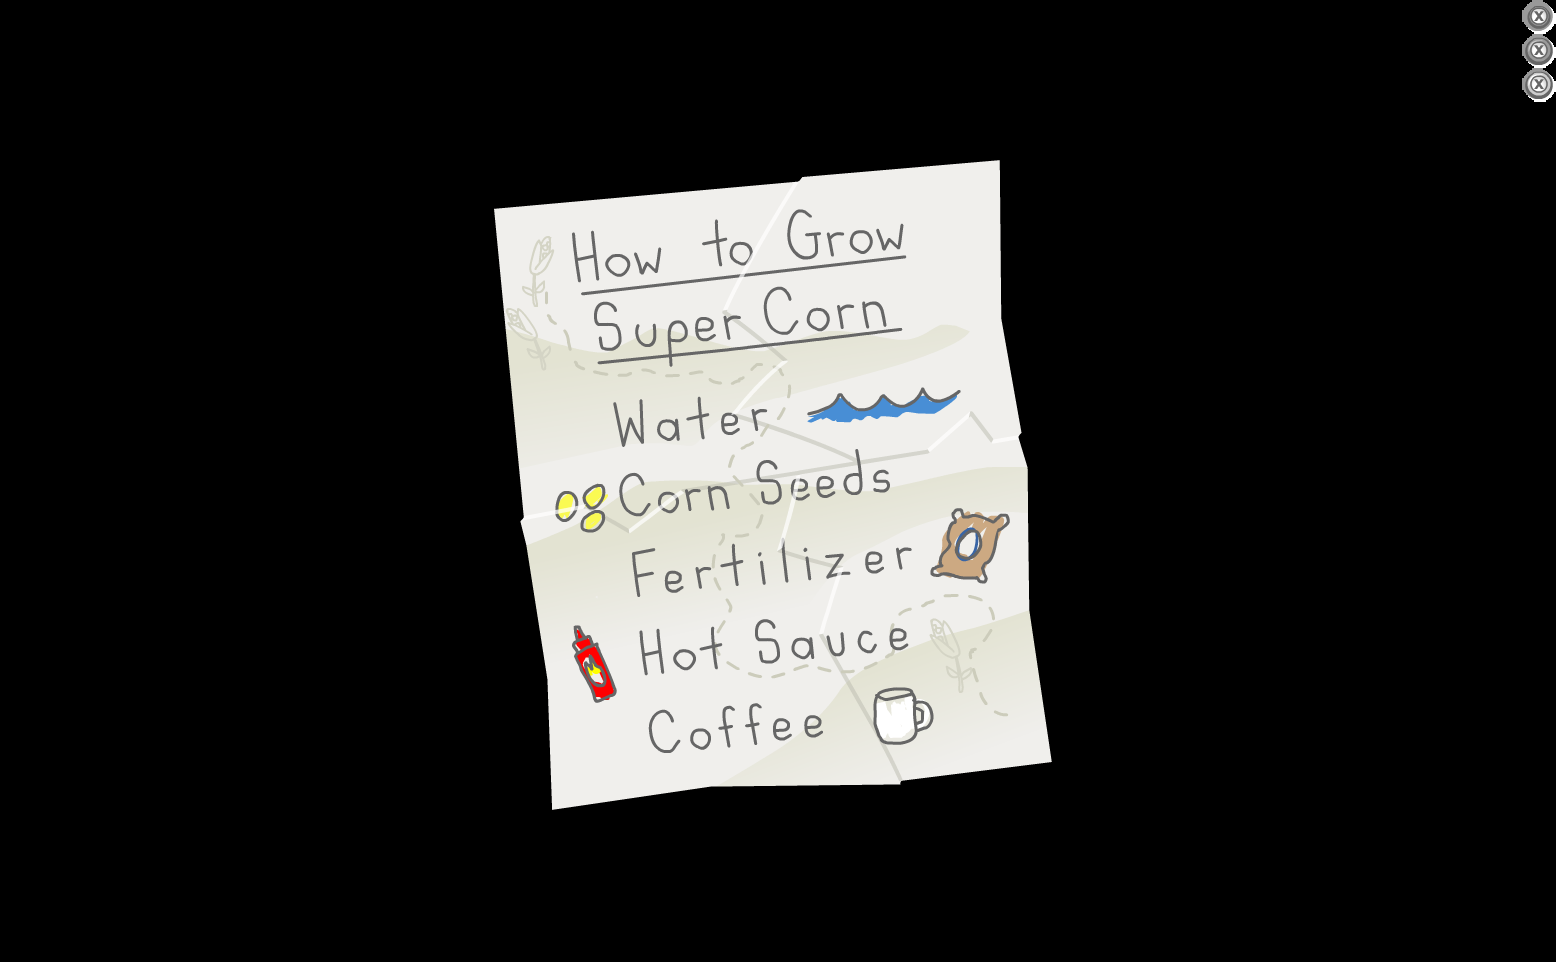 How to Grow
Super Corn
Water
Corn Seeds
Fertilizer
Hot Sauce
Coffee